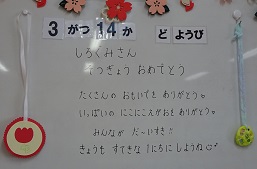 3 がつ 14 か どようび
しろくみさん
そつぎょう おめでとう
たくさんの おもいで ありがとう。
いっぱいの にこにこえがおを ありがとう。
みんなが だーいすき!!
きょうも すてきな 1にちに しようね